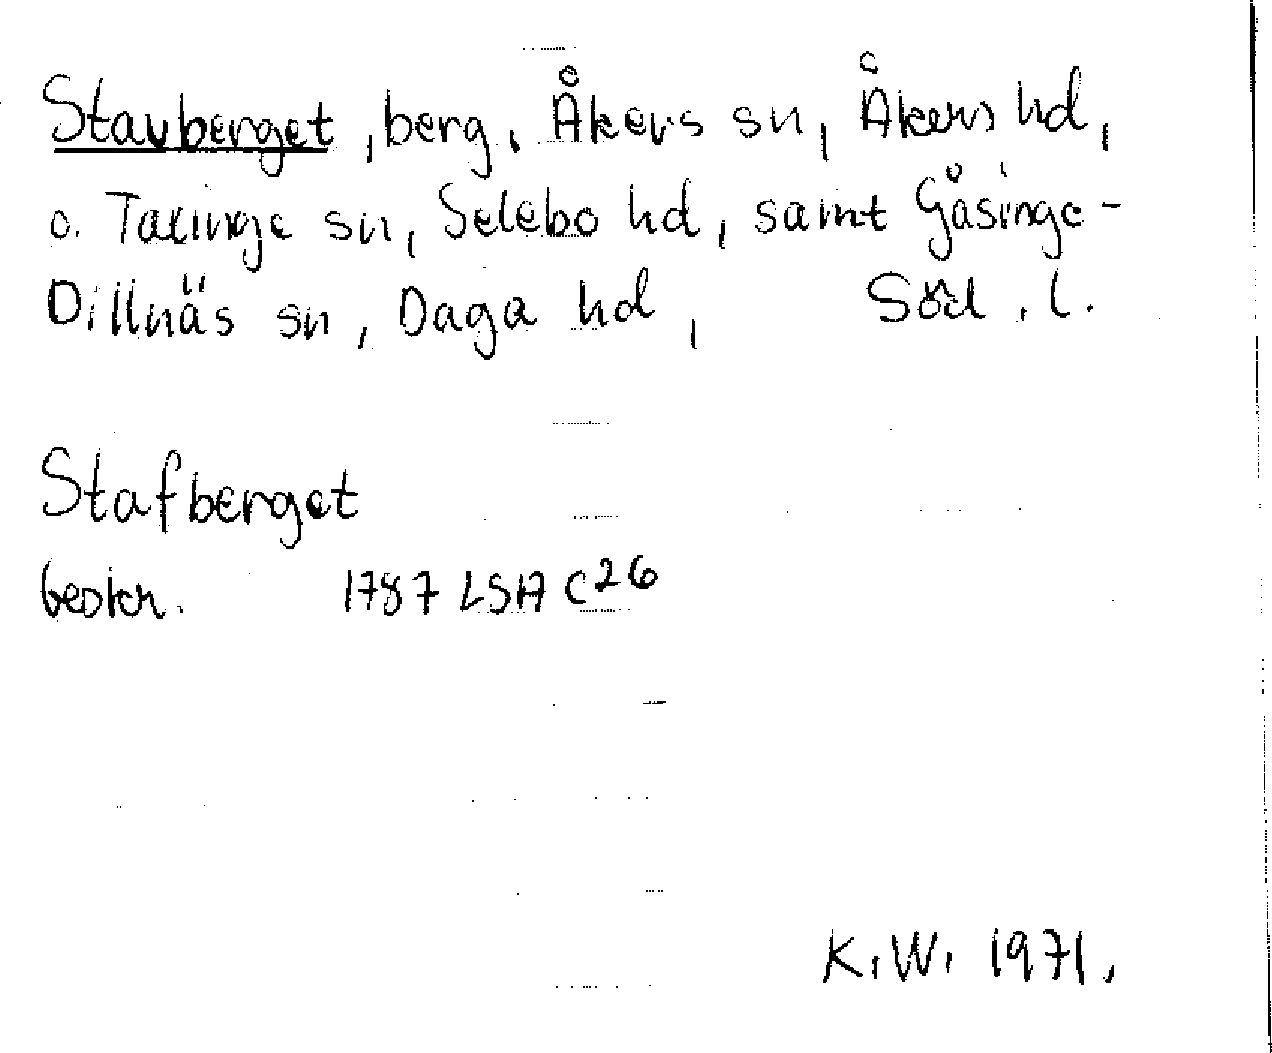 Stavberget, berg, Åkers sn, Åkers hd,
o. Taxinge sn, Selebo hd, samt Gåsinge-
Dillnäs sn, Daga hd, Söd. l.
Stafberget
beskr. 1787 LSA C26
K.W. 1971.